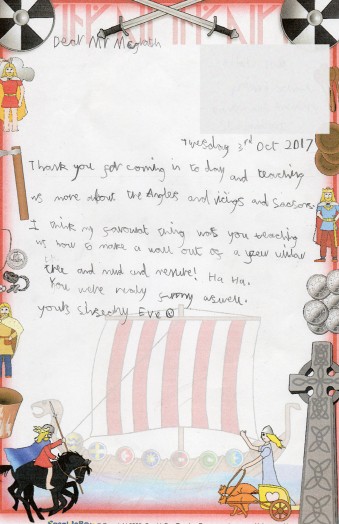 Dear Mr
Tuesday 3rd Oct 2017
Thank you for coming in to day and teaching
us more about the Angles and vicings and Saxsons.
I think my favourat thing was you teaching
us how to make a wall out of a
tree and mud and Ha Ha.
You were really funny aswell.
Eve